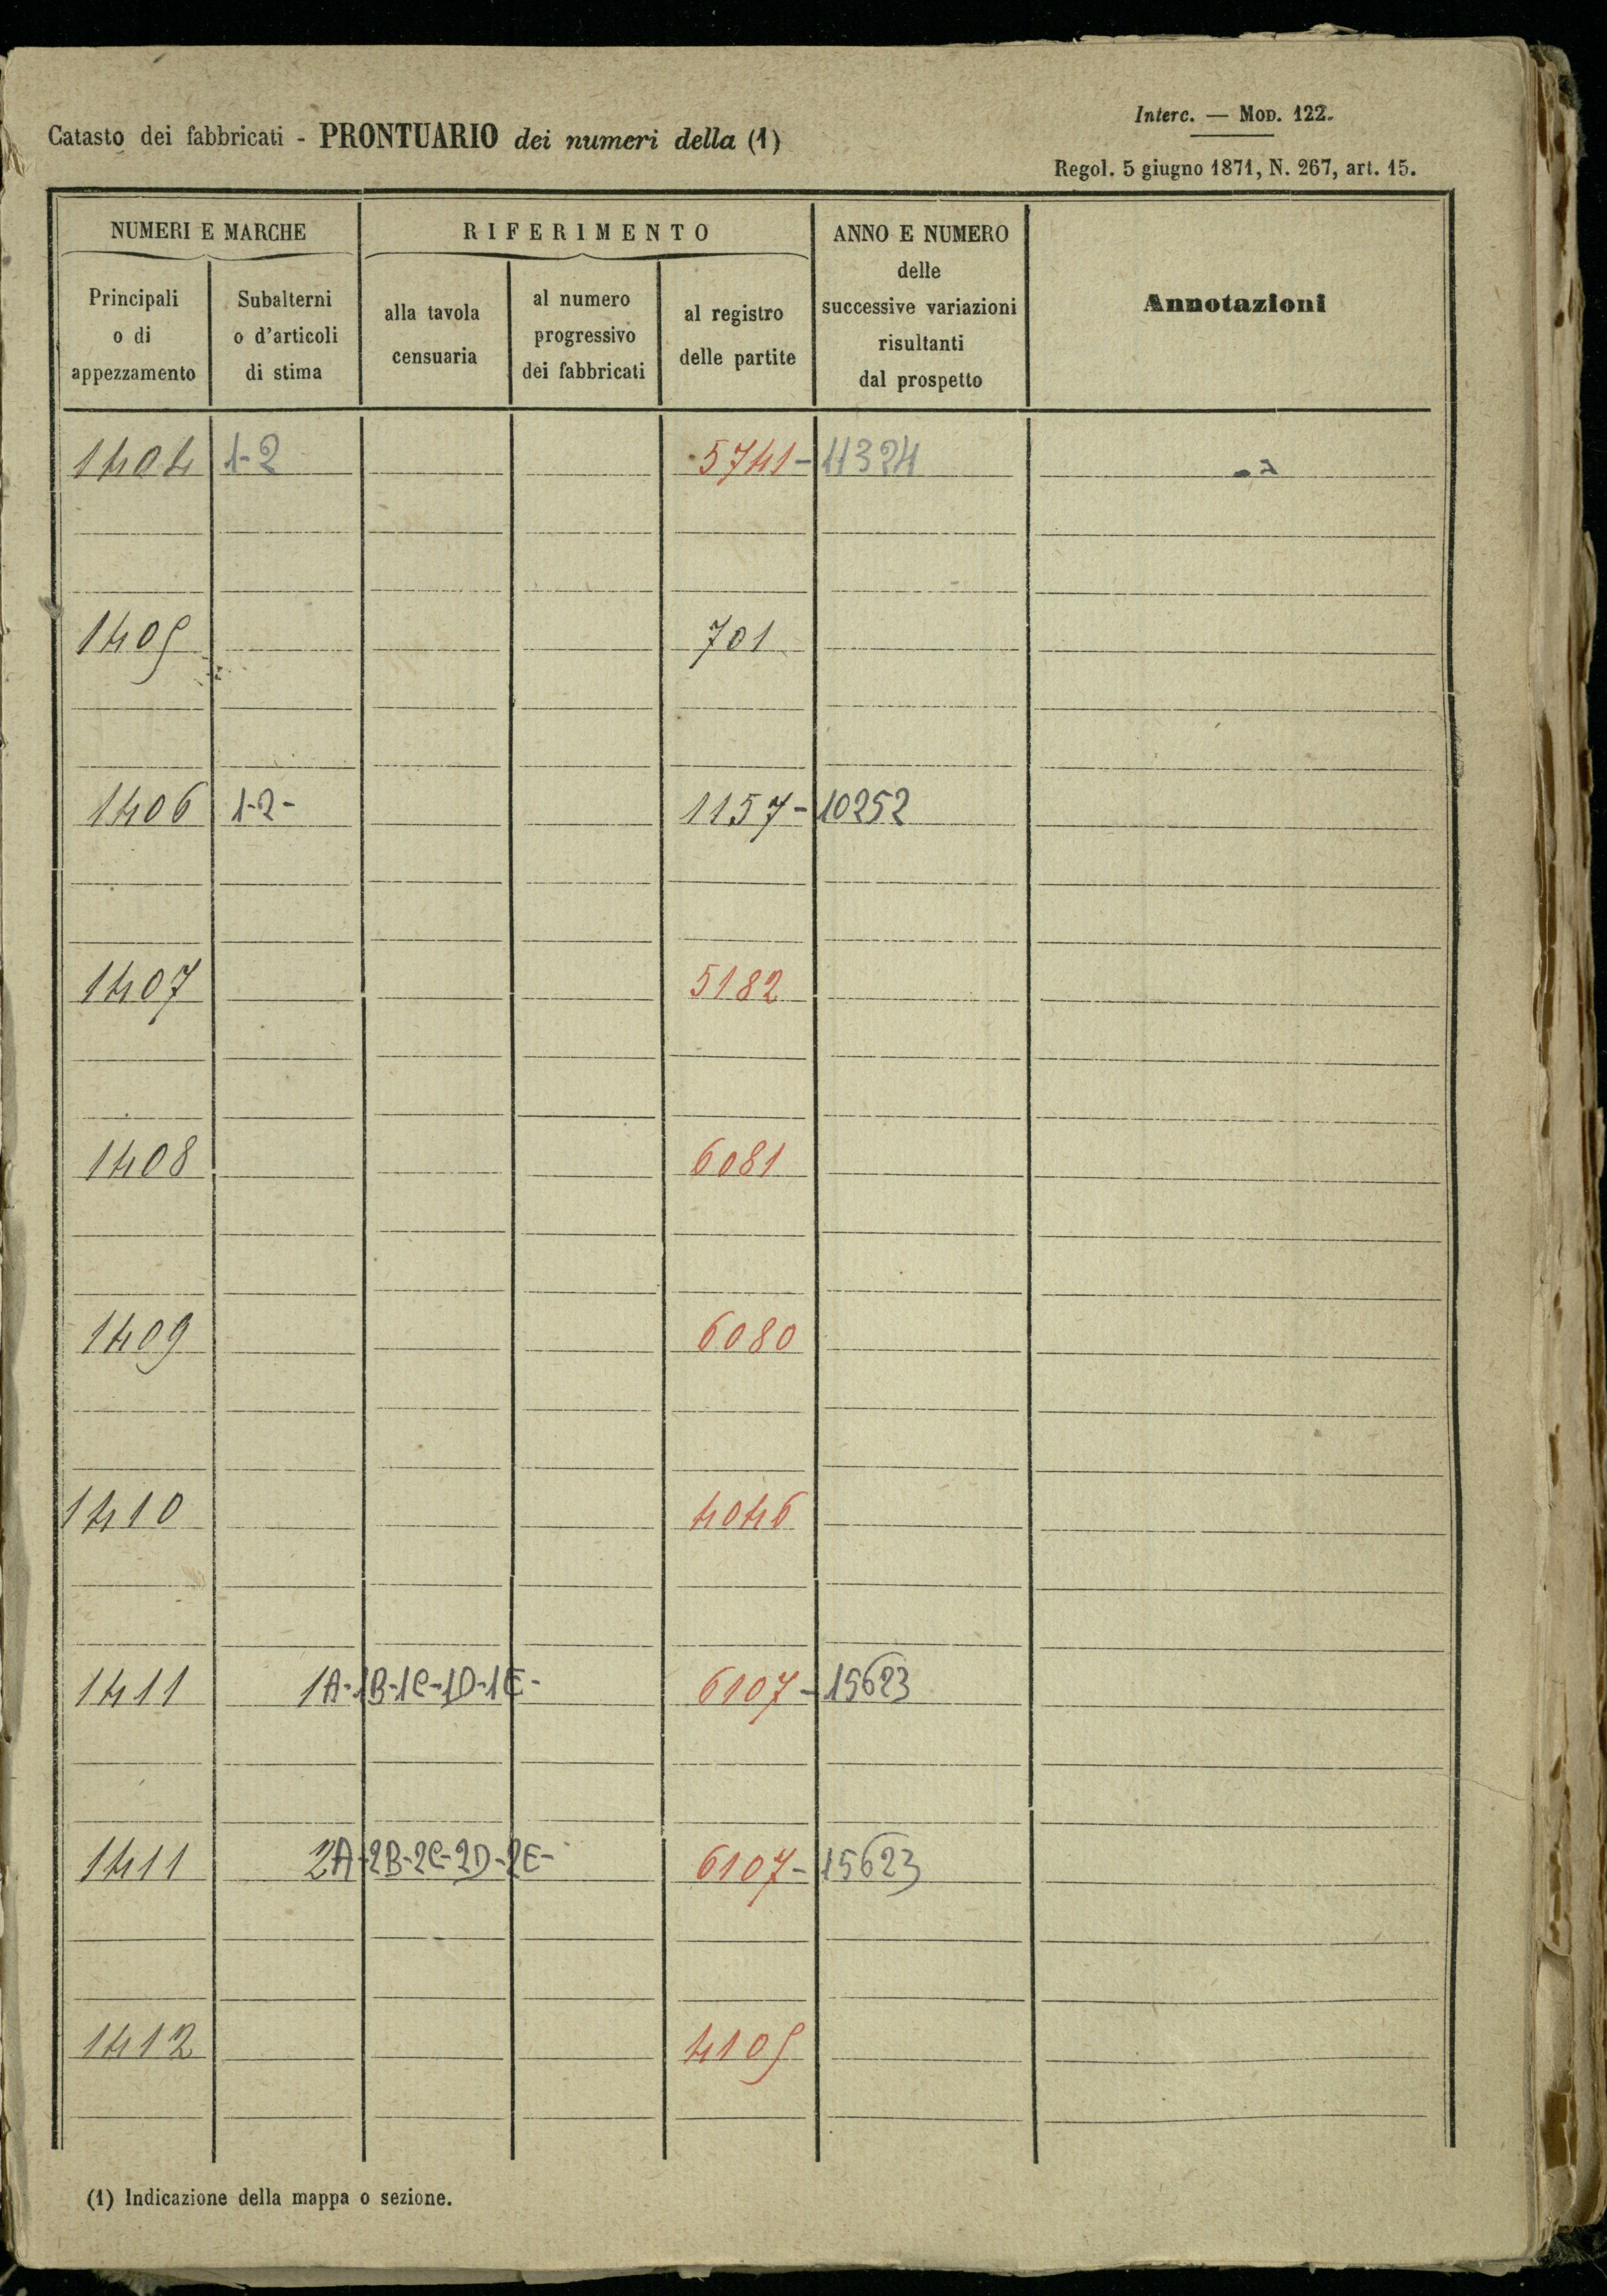 Catasto dei fabbricati - PRONTUARIO dei numeri della (1)
Interc. — MOD. 122.
Regol. 5 giugno 1871, N. 267, art. 15.
NUMERI E MARCHE
RIFERIMENTO
ANNO E NUMERO
delle
successive variazioni
risultanti
dal prospetto
Annotazioni
Principali
o di
appezzamento
Subalterni
o d'articoli
di stima
alla tavola
censuaria
al numero
progressivo
dei fabbricati
al registro
delle partite
1404 1-2 5741- 11324
1405 701
1406 1-2- 1157- 10252
1407 5182
1408 6081
1409 6080
1410 4046
1411 1A-1B-1C-1D-1E- 6107- 15623
1411 2A-2B-2C-2D-2E- 6107- 15623
1412 4105
(1) Indicazione della mappa o sezione.